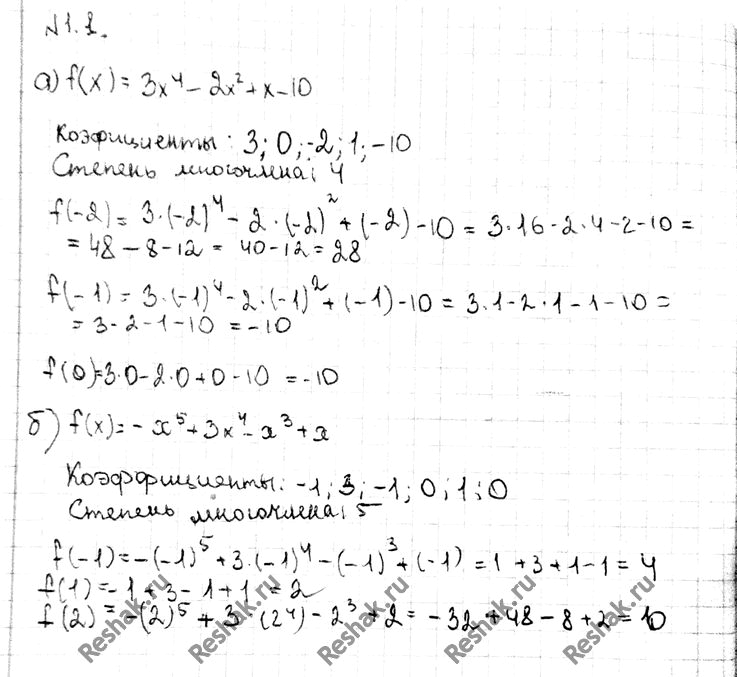 №1.1.
а) f(x) = 3x⁴ - 2x² + x - 10
Коэфициенты: 3; 0; -2; 1; -10
Степень многочлена: 4
f(-2) = 3·(-2)⁴ - 2·(-2)² + (-2) - 10 = 3·16 - 2·4 - 2 - 10 =
= 48 - 8 - 12 = 40 - 12 = 28
f(-1) = 3·(-1)⁴ - 2·(-1)² + (-1) - 10 = 3·1 - 2·1 - 1 - 10 =
= 3 - 2 - 1 - 10 = -10
f(0) = 3·0 - 2·0 + 0 - 10 = -10
б) f(x) = -x⁵ + 3x⁴ - x³ + x
Коэффициенты: -1; 3; -1; 0; 1; 0
Степень многочлена: 5
f(-1) = -(-1)⁵ + 3·(-1)⁴ - (-1)³ + (-1) = 1 + 3 + 1 - 1 = 4
f(1) = -1 + 3 - 1 + 1 = 2
f(2) = -(2)⁵ + 3·(2⁴) - 2³ + 2 = -32 + 48 - 8 + 2 = 10
Reshak.ru
Reshak.ru
Reshak.ru
Reshak.ru
Reshak.ru